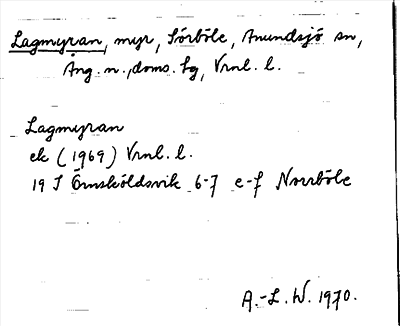 Lagmyran, myr, Sörböle, Anundsjö sn,
Ång. n., doms. sg, Vrnl. l.
Lagmyran
ek (1969) Vrnl. l.
19 J Örnsköldsvik 6-7 e-f Norrböle
A.-L. W. 1970.